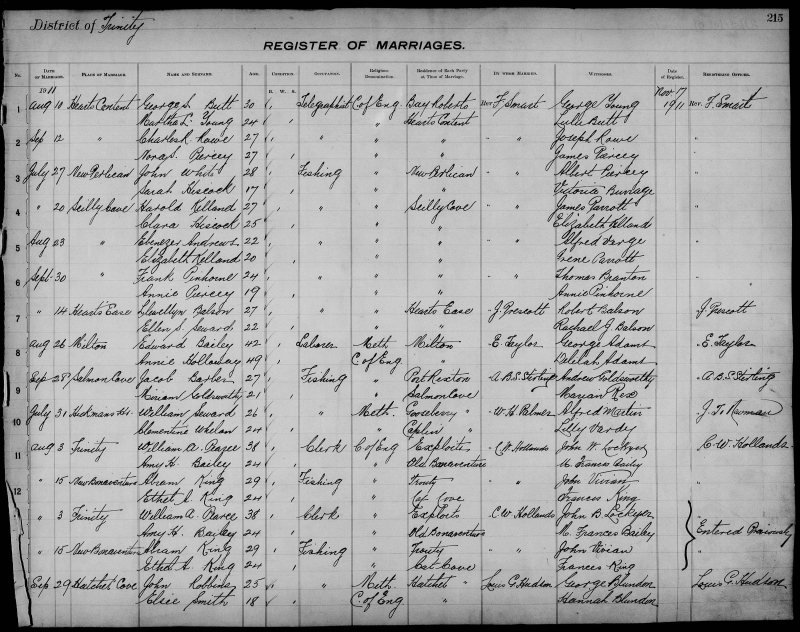 215
District of Trinity
REGISTER OF MARRIAGES.
No. DATE OF MARRIAGE. PLACE OF MARRIAGE. NAME AND SURNAME. AGE. CONDITION. OCCUPATION. Religious Denomination. Residence of Each Party at Time of Marriage. BY WHOM MARRIED. WITNESSES. Date of Register. REGISTERING OFFICER.
1911 B. W. S. Nov 17
1 Aug 10 Hearts Content George S. Butt 30 Telegraphist C of Eng. Bay Roberts Rev F. Smart George Young 1911 Rev. F. Smart
Martha L. Young 24 " Hearts Content Lulu Butt
2 Sep 12 " Charles R. Rowe 27 " " " " " Joseph Rowe "
Nora S. Piercey 27 " " James Piercey
3 July 27 New Perlican John White 28 Fishing " New Perlican " " Albert Piercey "
Sarah Hiscock 17 " " Victoria Burrage
4 " 20 Scilly Cove Harold Kelland 27 " " Scilly Cove James Parrott "
Clara Hiscock 25 " " Elizabeth Kelland
5 Aug 23 " Ebenezer Andrews 22 " " " " " Alfred "
Elizabeth Kelland 20 " " Irene Parrott
6 Sept 30 " Frank Pinhorne 24 " " " " " Thomas Branton "
Annie Piercey 19 " " Annie Pinhorne
7 " 14 Heart's Ease Llewellyn Balson 27 " " Hearts Ease " J. Prescott Robert Balson J. Prescott
Ellen S. Seward 22 " " Rachael G. Balson
8 Aug 26 Milton Edward Bailey 42 Laborer Meth. Milton " E. Taylor George Adams " E. Taylor
Annie Holloway 49 C of Eng. " Delilah Adams
9 Sep 28 Salmon Cove Jacob Barber 27 Fishing " Port Rexton " A.B.S. Stirling Andrew Goldsworthy " A.B.S. Stirling
Marian Goldsworthy 21 " Salmon Cove Marian Rex
10 July 31 Hickmans Hr. William Seward 26 " Meth. Gooseberry " " W. H. Palmer Alfred Martin
Clementine Whelan 24 " Caplin " Lilly Vardy
11 Aug 3 Trinity William A. Pearce 38 Clerk C of Eng Exploits " C. W. Hollands John W. C. W. Hollands
Amy H. Bailey 24 " Old Bonaventure M. Frances Bailey
12 " 15 New Bonaventure Abram King 29 Fishing " Trouty " " John Vivian "
Ethel S. King 24 " Cat Cove Frances King
" 3 Trinity William A. Pearce 38 Clerk " Exploits " C. W. Hollands John B. "
Amy H. Bailey 24 " Old Bonaventure M. Frances Bailey Entered Previously
" 15 New Bonaventure Abram King 29 Fishing " Trouty " " John Vivian "
Ethel S. King 24 " Cat Cove Frances King
Sep 29 Hatchet Cove John Robbins 25 " Meth. Hatchet " Louis G. Hudson George Blundon Louis G. Hudson
Elsie Smith 18 C. of Eng " Hannah Blundon